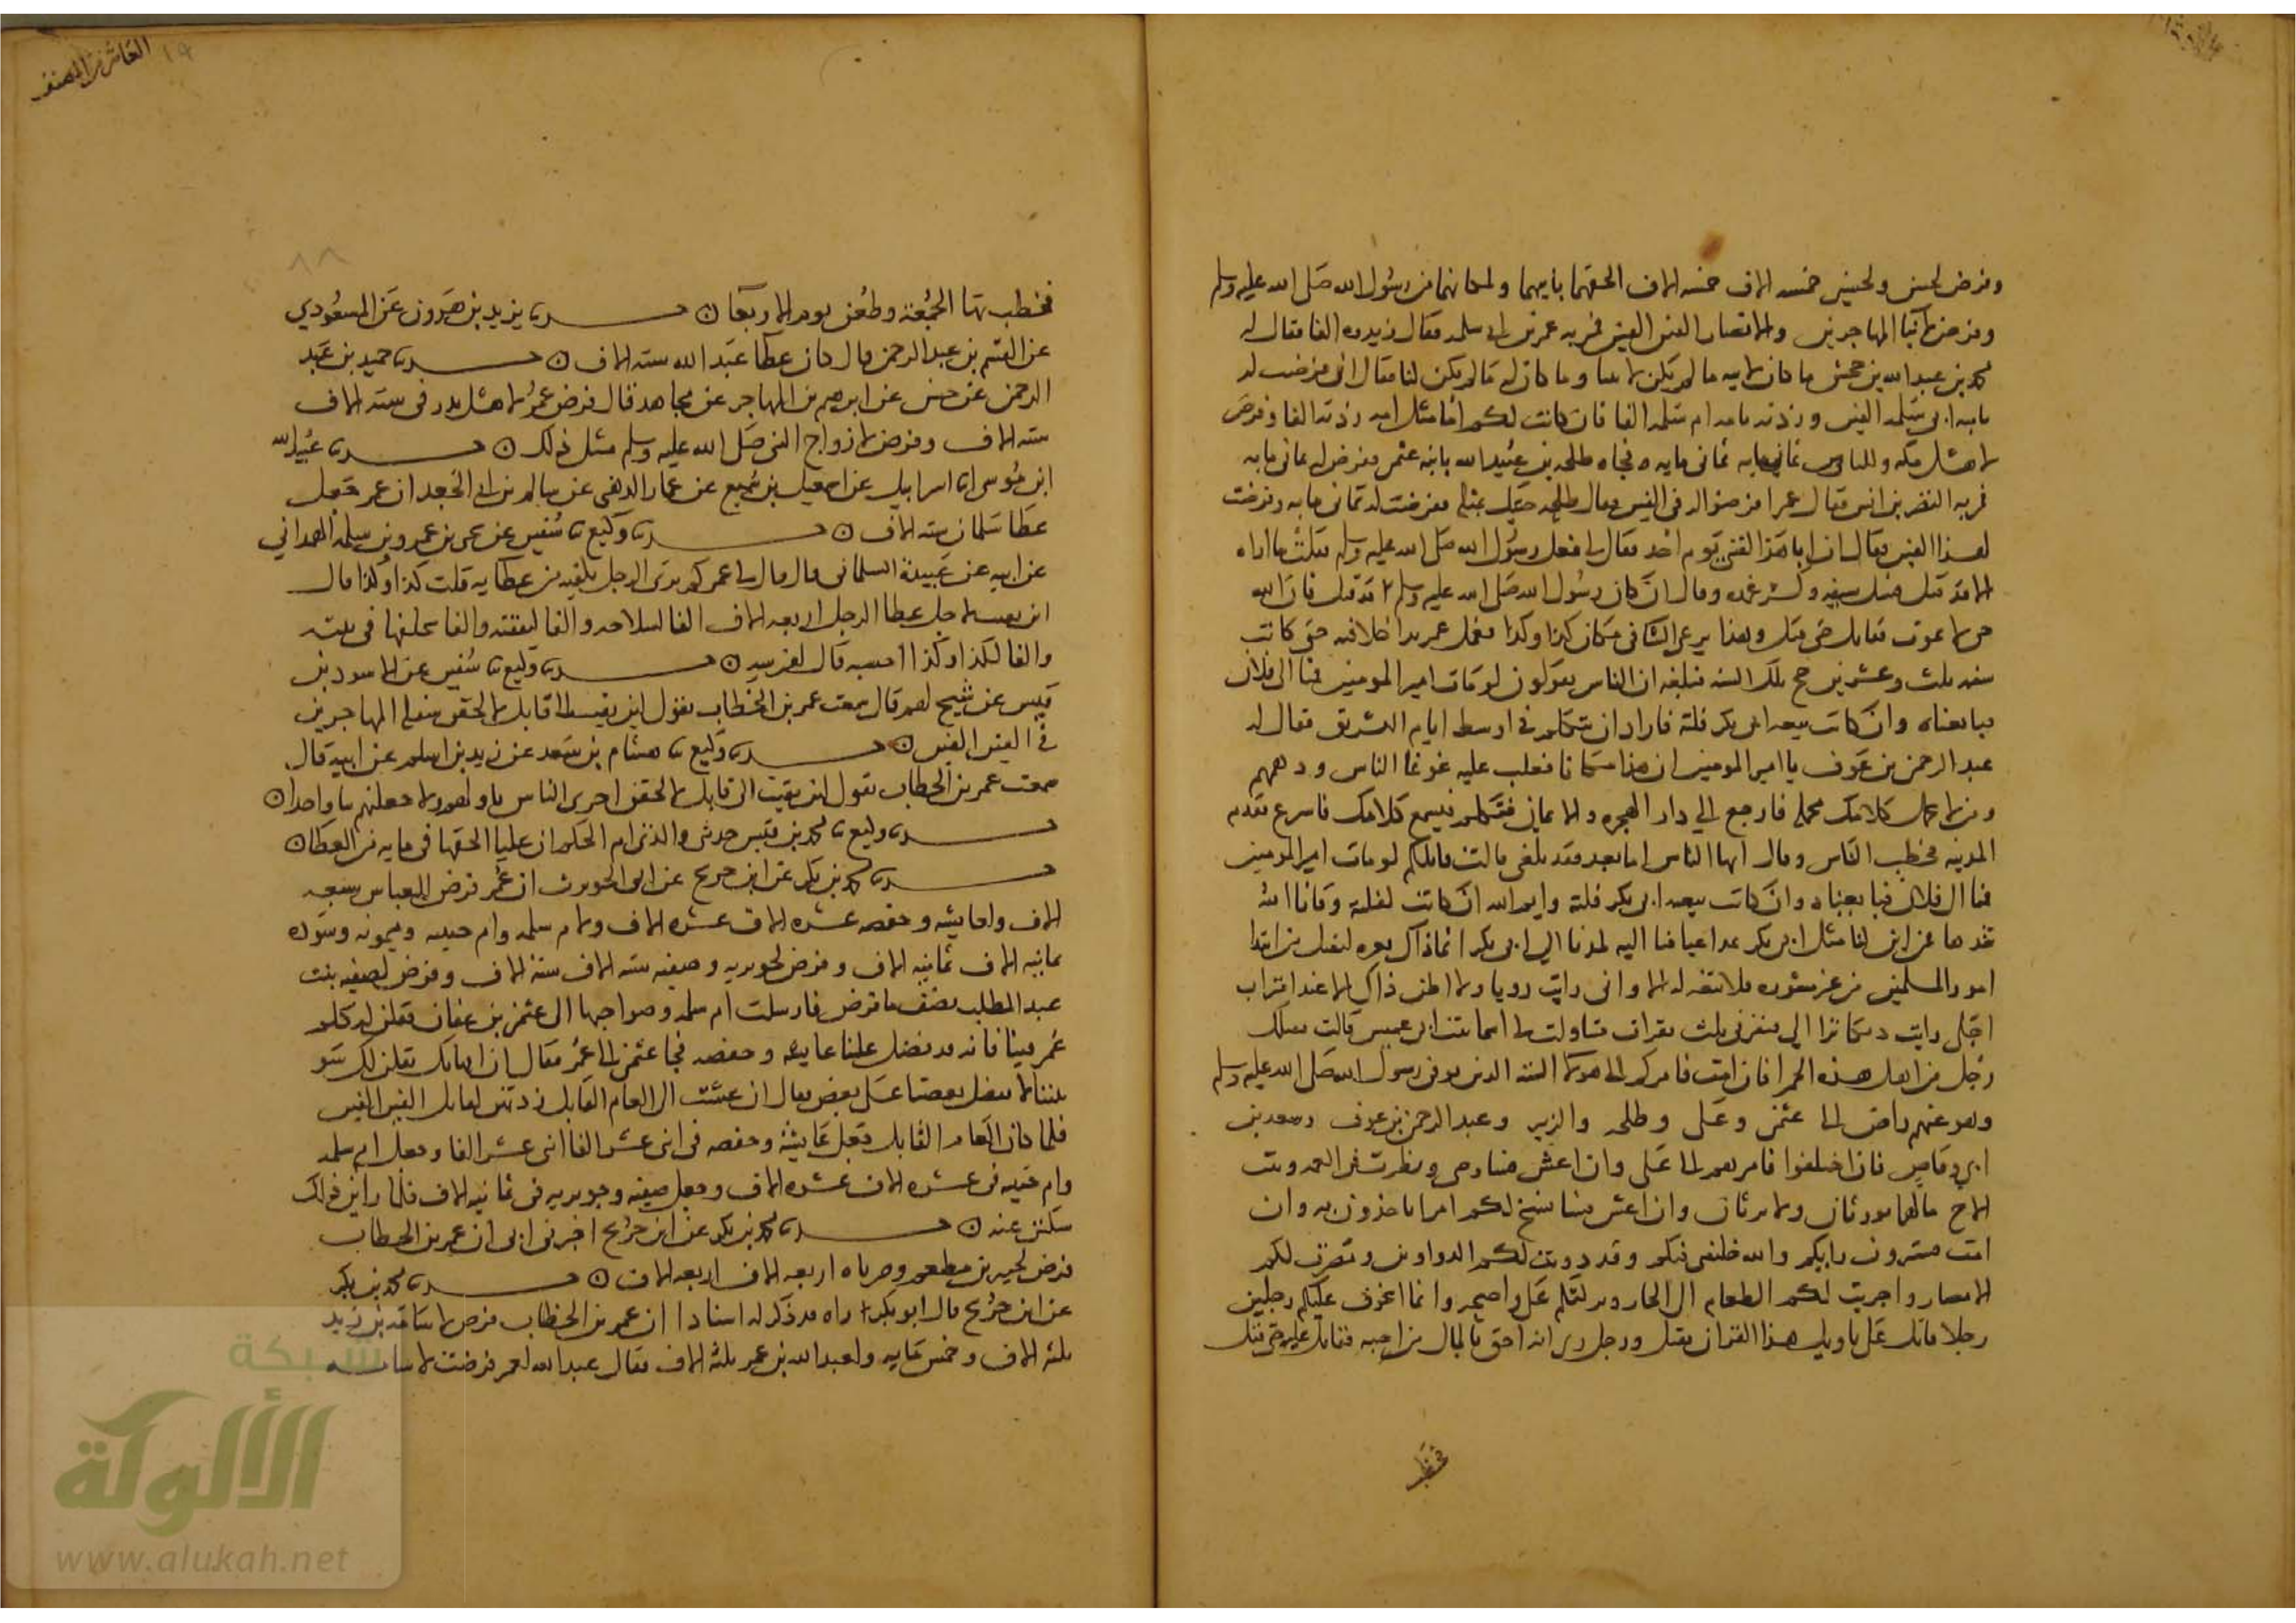 وفرض لحسن ولحسين خمسه الاف خمسه الاف الحقهما بابيهما ولمكانهما من رسول الله صلى الله عليه وسلم
وفرض لابنا المهاجرين والانصار الفين الفين فمر به عمر بن ابي سلمه فقال زيدوه الفا فقال له
محمد بن عبد الله بن جحش ما كان لابيه ما لم يكن لابينا وما كان له ما لم يكن لنا فقال اني فرضت له
بابيه ابي سلمه الفين وزدته بامه ام سلمه الفا فان كانت لكم ام مثل امه زدته الفا وفرض
لاهل مكه وللناس ثماني مايه ثماني مايه فجاه طلحه بن عبيد الله بابنه عثمن ففرض له ثماني مايه
فمر به النضر بن انس فقال عمر افرضوا له في الفين فقال طلحه جيتك بمثله ففرضت له ثماني مايه وفرضت
لهذا الفين فقال ان ابا هذا لقيني يوم احد فقال لي ما فعل رسول الله صلى الله عليه وسلم فقلت ما اراه
الا قد قتل فسل سيفه وكسر غمده وقال ان كان رسول الله صلى الله عليه وسلم قد قتل فان الله
حي لا يموت فقاتل حتى قتل وهذا يرعى الشا في مكان كذا وكذا فعمل عمر بدا خلافته حتى كانت
سنه ثلث وعشرين حج تلك السنه فبلغه ان الناس يقولون لو مات امير المومنين قمنا الى فلان
فبايعناه وان كانت بيعه ابي بكر فلتة فاراد ان يتكلم في اوسط ايام التشريق فقال له
عبد الرحمن بن عوف يا امير المومنين ان هذا مكانا يغلب عليه غوغا الناس ودهمهم
ومن لا يحمل كلامك محمله فارجع الي دار الهجره والايمان فتكلم فيسمع كلامك فاسرع فقدم
المدينه فخطب الناس وقال ايها الناس اما بعد فقد بلغني قالت قايلكم لو مات امير المومنين
قمنا الى فلان فبايعناه وان كانت بيعه ابي بكر فلتة وايم الله ان كانت لفلتة وقانا الله
شرها فمن اين لنا مثل ابي بكر نمد اعناقنا اليه كمدنا الي ابي بكر انما ذاك تغره ليقتل من انتزا
امور المسلمين من غير مشوره فلا بيعه له الا واني رايت رويا ولا اظن ذاك الا عند اقتراب
اجلي رايت ديكا نزا الي فنقرني ثلث نقرات فتاولت لي اسما بنت عميس قالت يقتلك
رجل من اهل هذه الحمرا فان امت فامركم الى هولا السته الذين توفي رسول الله صلى الله عليه وسلم
وهو عنهم راض الى عثمن وعلي وطلحه والزبير وعبد الرحمن بن عوف وسعد بن
ابي وقاص فان اختلفوا فامرهم الى علي وان اعش فساوصي ونظرت في العمه وبنت
الاخ ما لهما يورثان ولا يرثان وان اعش فسافتح لكم امرا تاخذون به وان
امت فسترون رايكم والله خليفتي فيكم وقد دونت لكم الدواوين ومصرت لكم
الامصار واجريت لكم الطعام الى الجار وتركتكم على واضحه وانما اتخوف عليكم رجلين
رجلا قاتل على تاويل هذا القران يقتل ورجل راى انه احق بالمال من اخيه فقاتل عليه حتى قتل
فخطب
العاشر من المصنف
١٩
٨٨
فخطب بها الجمعة وطعن يوم الاربعا ن حدثنا يزيد بن هرون عن المسعودي
عن القسم بن عبد الرحمن قال كان عطا عبد الله سته الاف ن حدثنا حميد بن عبد
الرحمن عن حسن عن ابرهيم بن المهاجر عن مجاهد قال فرض عمر لاهل بدر في سته الاف
سته الاف وفرض لازواج النبي صلى الله عليه وسلم مثل ذلك ن حدثنا عبيد الله
ابن موسى انا اسرايل عن اسمعيل بن سميع عن عمار الدهني عن سالم بن ابي الجعد ان عمر جعل
عطا سلمان سته الاف ن حدثنا وكيع نا سفين عن عمر بن عمرو بن سلمه الهمداني
عن ابيه عن عبيدة السلماني قال قال لي عمر كم ترى الرجل يكفيه من عطايه قلت كذا وكذا قال
لين بقيت لاجعلن عطا الرجل اربعه الاف الفا لسلاحه والفا لنفقته والفا يخلفها في بيته
والفا لكذا وكذا احسبه قال لفرسه ن حدثنا وكيع نا سفين عن الاسود بن
قيس عن شيخ لهم قال سمعت عمر بن الخطاب يقول لين بقيت الى قابل لالحقن سفله المهاجرين
في الفين الفين ن حدثنا وكيع نا هشام بن سعد عن زيد بن اسلم عن ابيه قال
سمعت عمر بن الخطاب يقول لين بقيت الى قابل لالحقن اخرى الناس باولهم ولاجعلنهم بيانا واحدا ن
حدثنا وكيع نا محمد بن قيس حدثني والدتي ام الحكم ان عليا الحقها في مايه من العطا ن
حدثنا محمد بن بكر عن ابن جريج عن ابي الحويرث ان عمر فرض للعباس سبعه
الاف ولعايشه وحفصه عشره الاف عشره الاف ولام سلمه وام حبيبه وميمونه وسوده
ثمانيه الاف ثمانيه الاف وفرض لجويريه وصفيه سته الاف سته الاف وفرض لصفيه بنت
عبد المطلب نصف ما فرض لهن فارسلت ام سلمه وصواحبها الى عثمن بن عفان فقلن له كلم
عمر فينا فانه قد فضل علينا عايشه وحفصه فجا عثمن الى عمر فقال ان امهاتك يقلن لك سو
بيننا لا تفضل بعضنا على بعض فقال ان عشت الى العام القابل زدتهن لقابل الفين الفين
فلما كان العام القابل جعل عايشة وحفصه في اثني عشر الفا اثني عشر الفا وجعل ام سلمه
وام حبيبه في عشره الاف عشره الاف وجعل صفيه وجويريه في ثمانيه الاف فلما راين ذلك
سكتن عنه ن حدثنا محمد بن بكر عن ابن جريج اخبرني ابي ان عمر بن الخطاب
فرض لجبير بن مطعم وضرباه اربعه الاف اربعه الاف ن حدثنا محمد بن بكر
عن ابن جريج قال ابو بكر اراه قد ذكر له اسنادا ان عمر بن الخطاب فرض لاسامه بن زيد
ثلثه الاف وخمس مايه ولعبد الله بن عمر ثلثه الاف فقال عبد الله لعمر فرضت لاسامه
شبكة
الألوكة
www.alukah.net